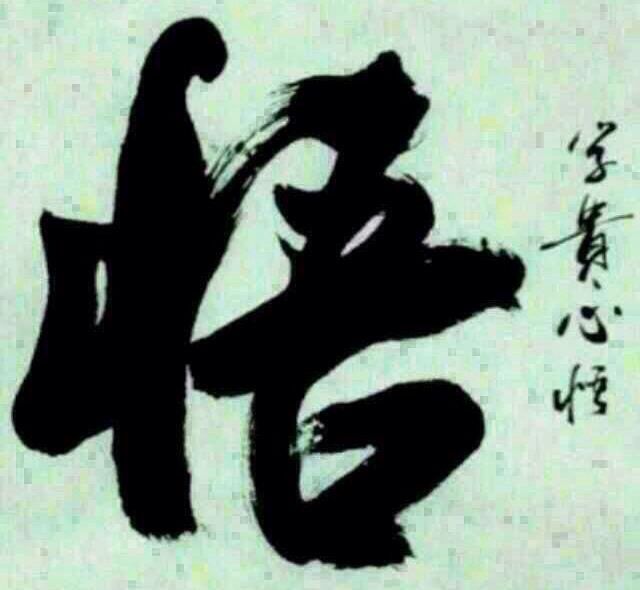 悟
学貴心悟